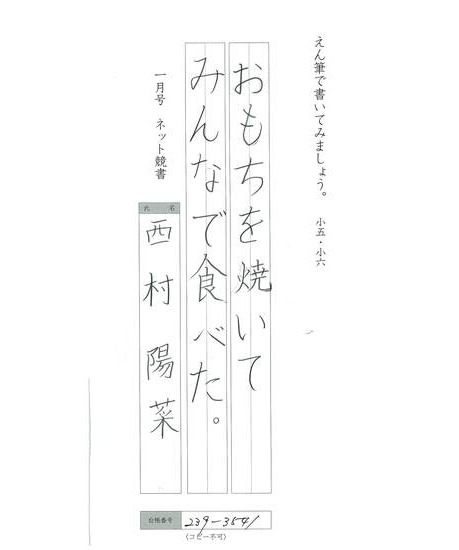 えん筆で書いてみましょう。 小五・小六
おもちを焼いて
みんなで食べた。
一月号 ネット競書
氏名
西村陽菜
台帳番号 239-3541
(コピー不可)